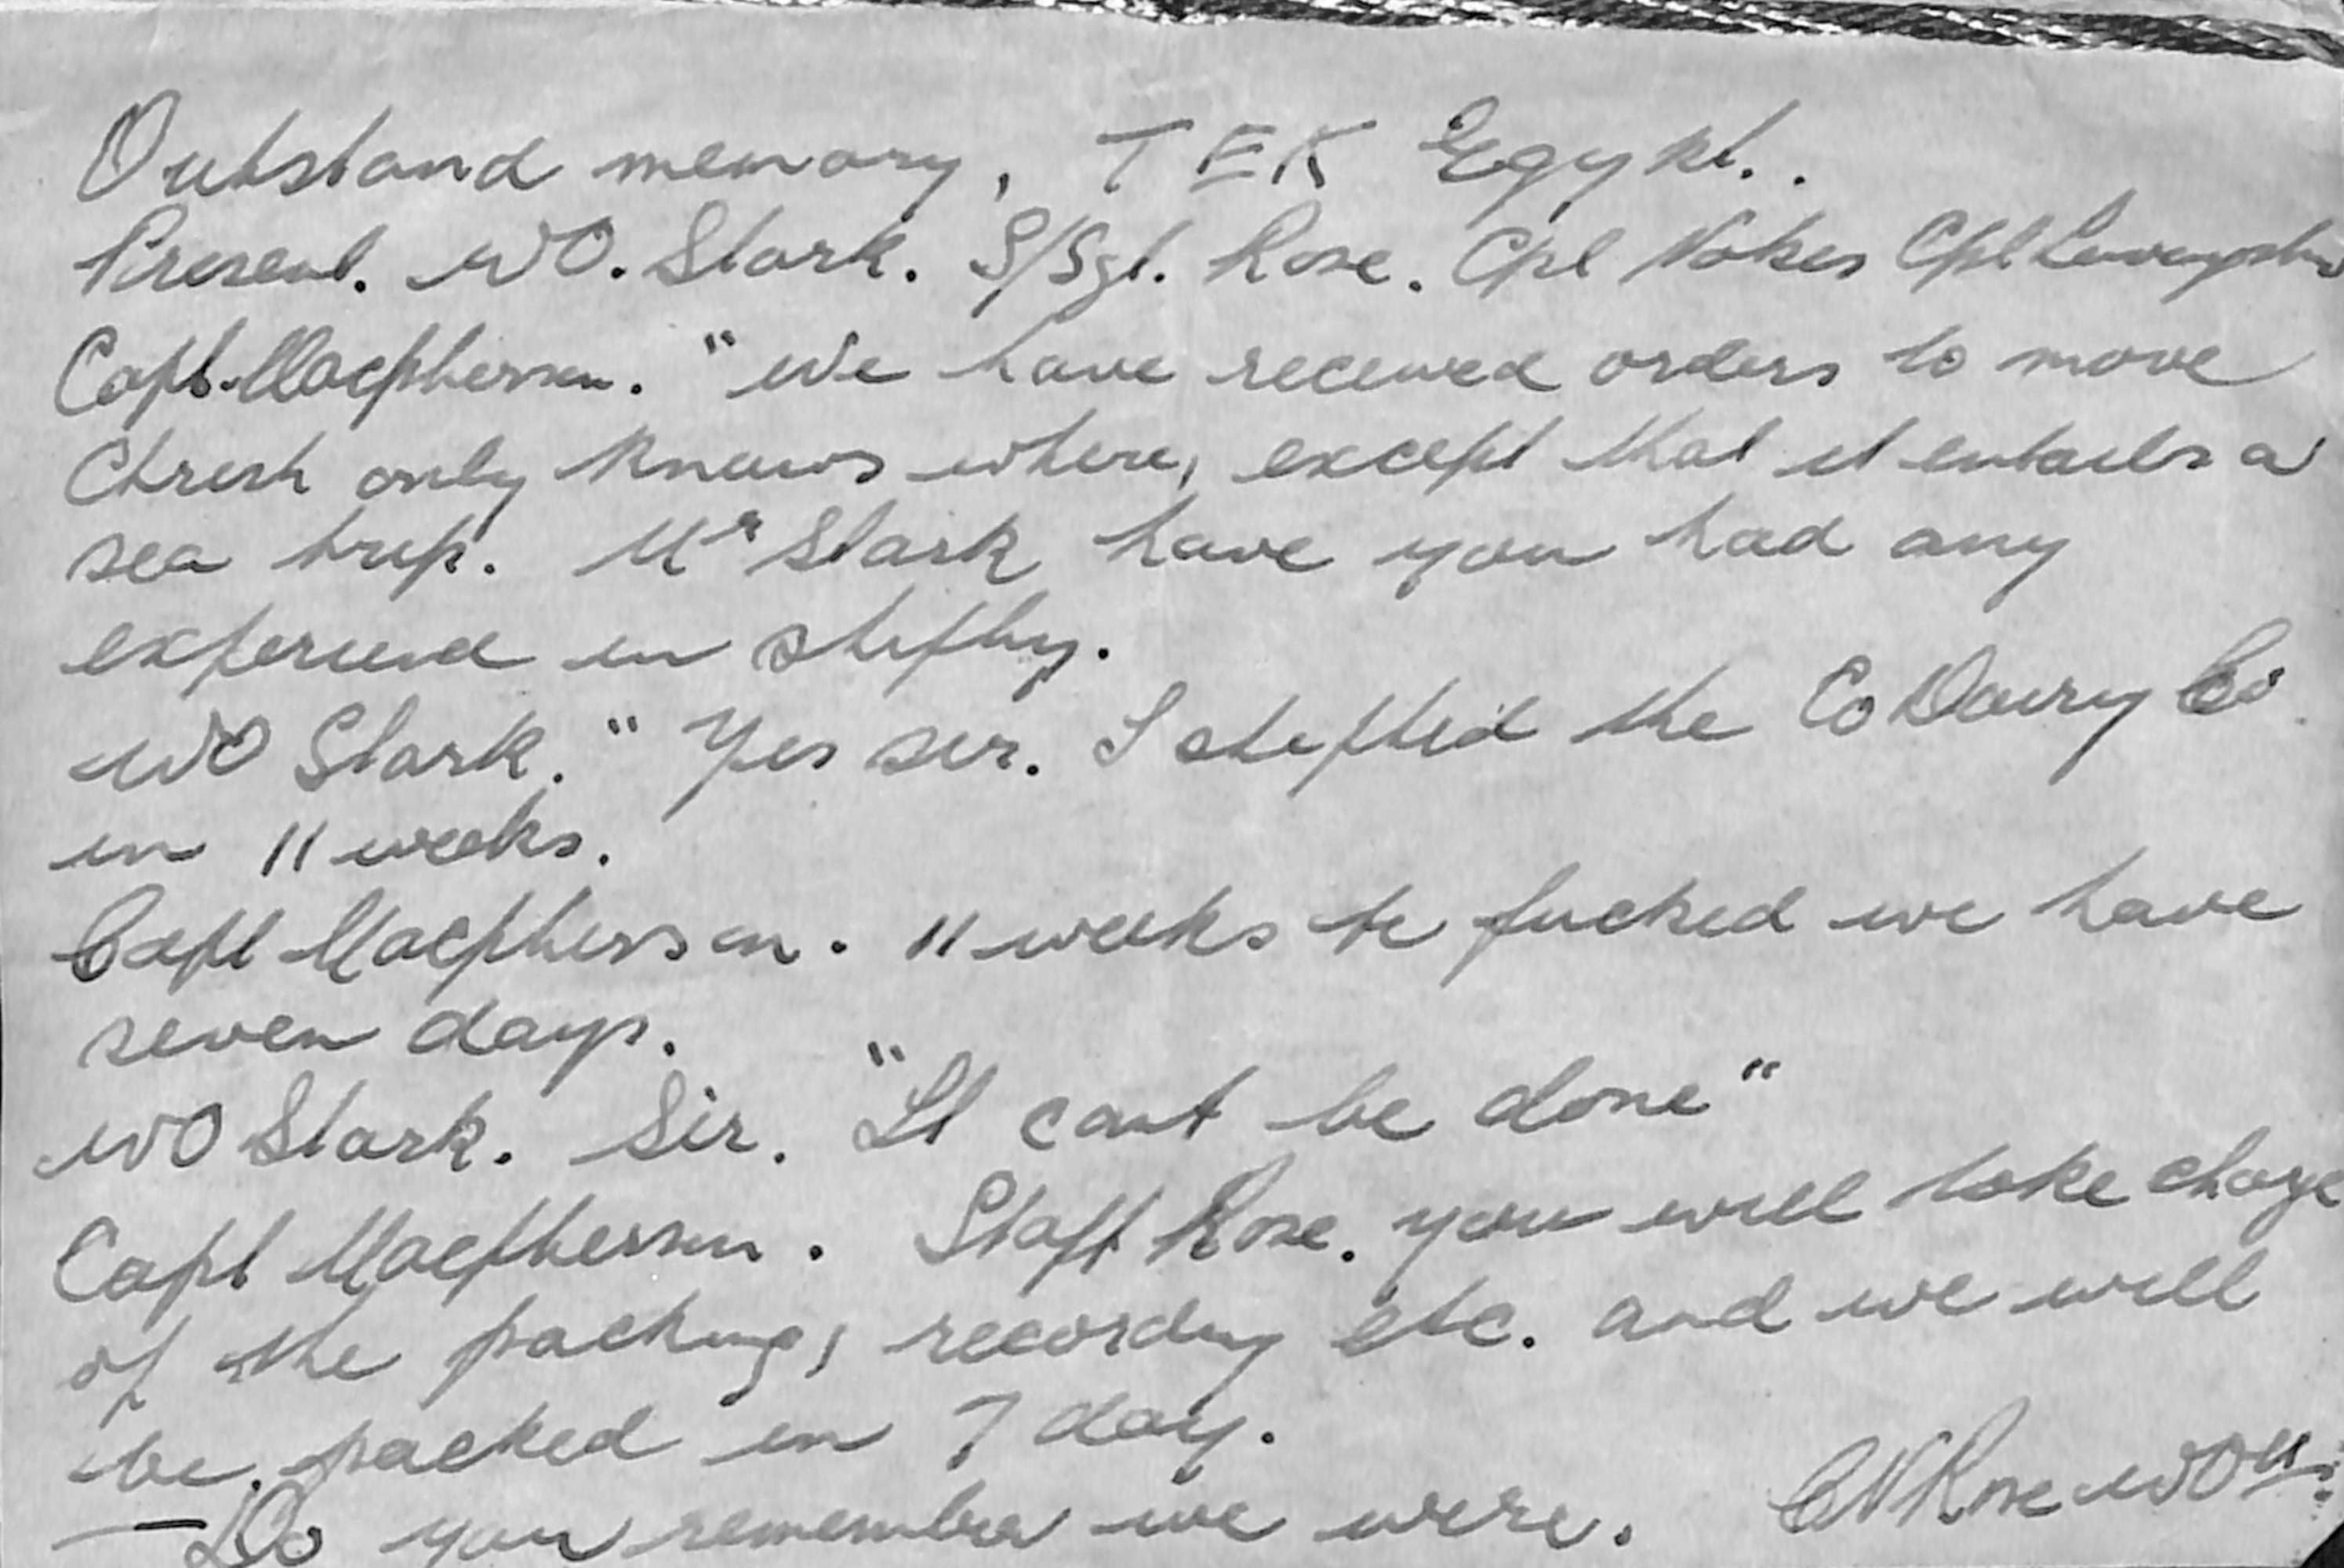 Outstand memory, TEK Egypt..
Present. WO. Stark. S/Sgt. Rose. Cpl Nokes Cpl
Capt. Macpherson. "We have received orders to move
Christ only knows where, except that it entails a
sea trip. Mr Stark have you had any
experience in shifting.
WO Stark. "Yes sir. I shifted the Co Dairy Co
in 11 weeks.
Capt Macpherson. 11 weeks be fucked we have
seven days.
WO Stark. Sir. "It cant be done"
Capt Macpherson. Staff Rose. you will take charge
of the packing, recording etc. and we will
be packed in 7 day.
— Do you remember we were. CNRose WOII.